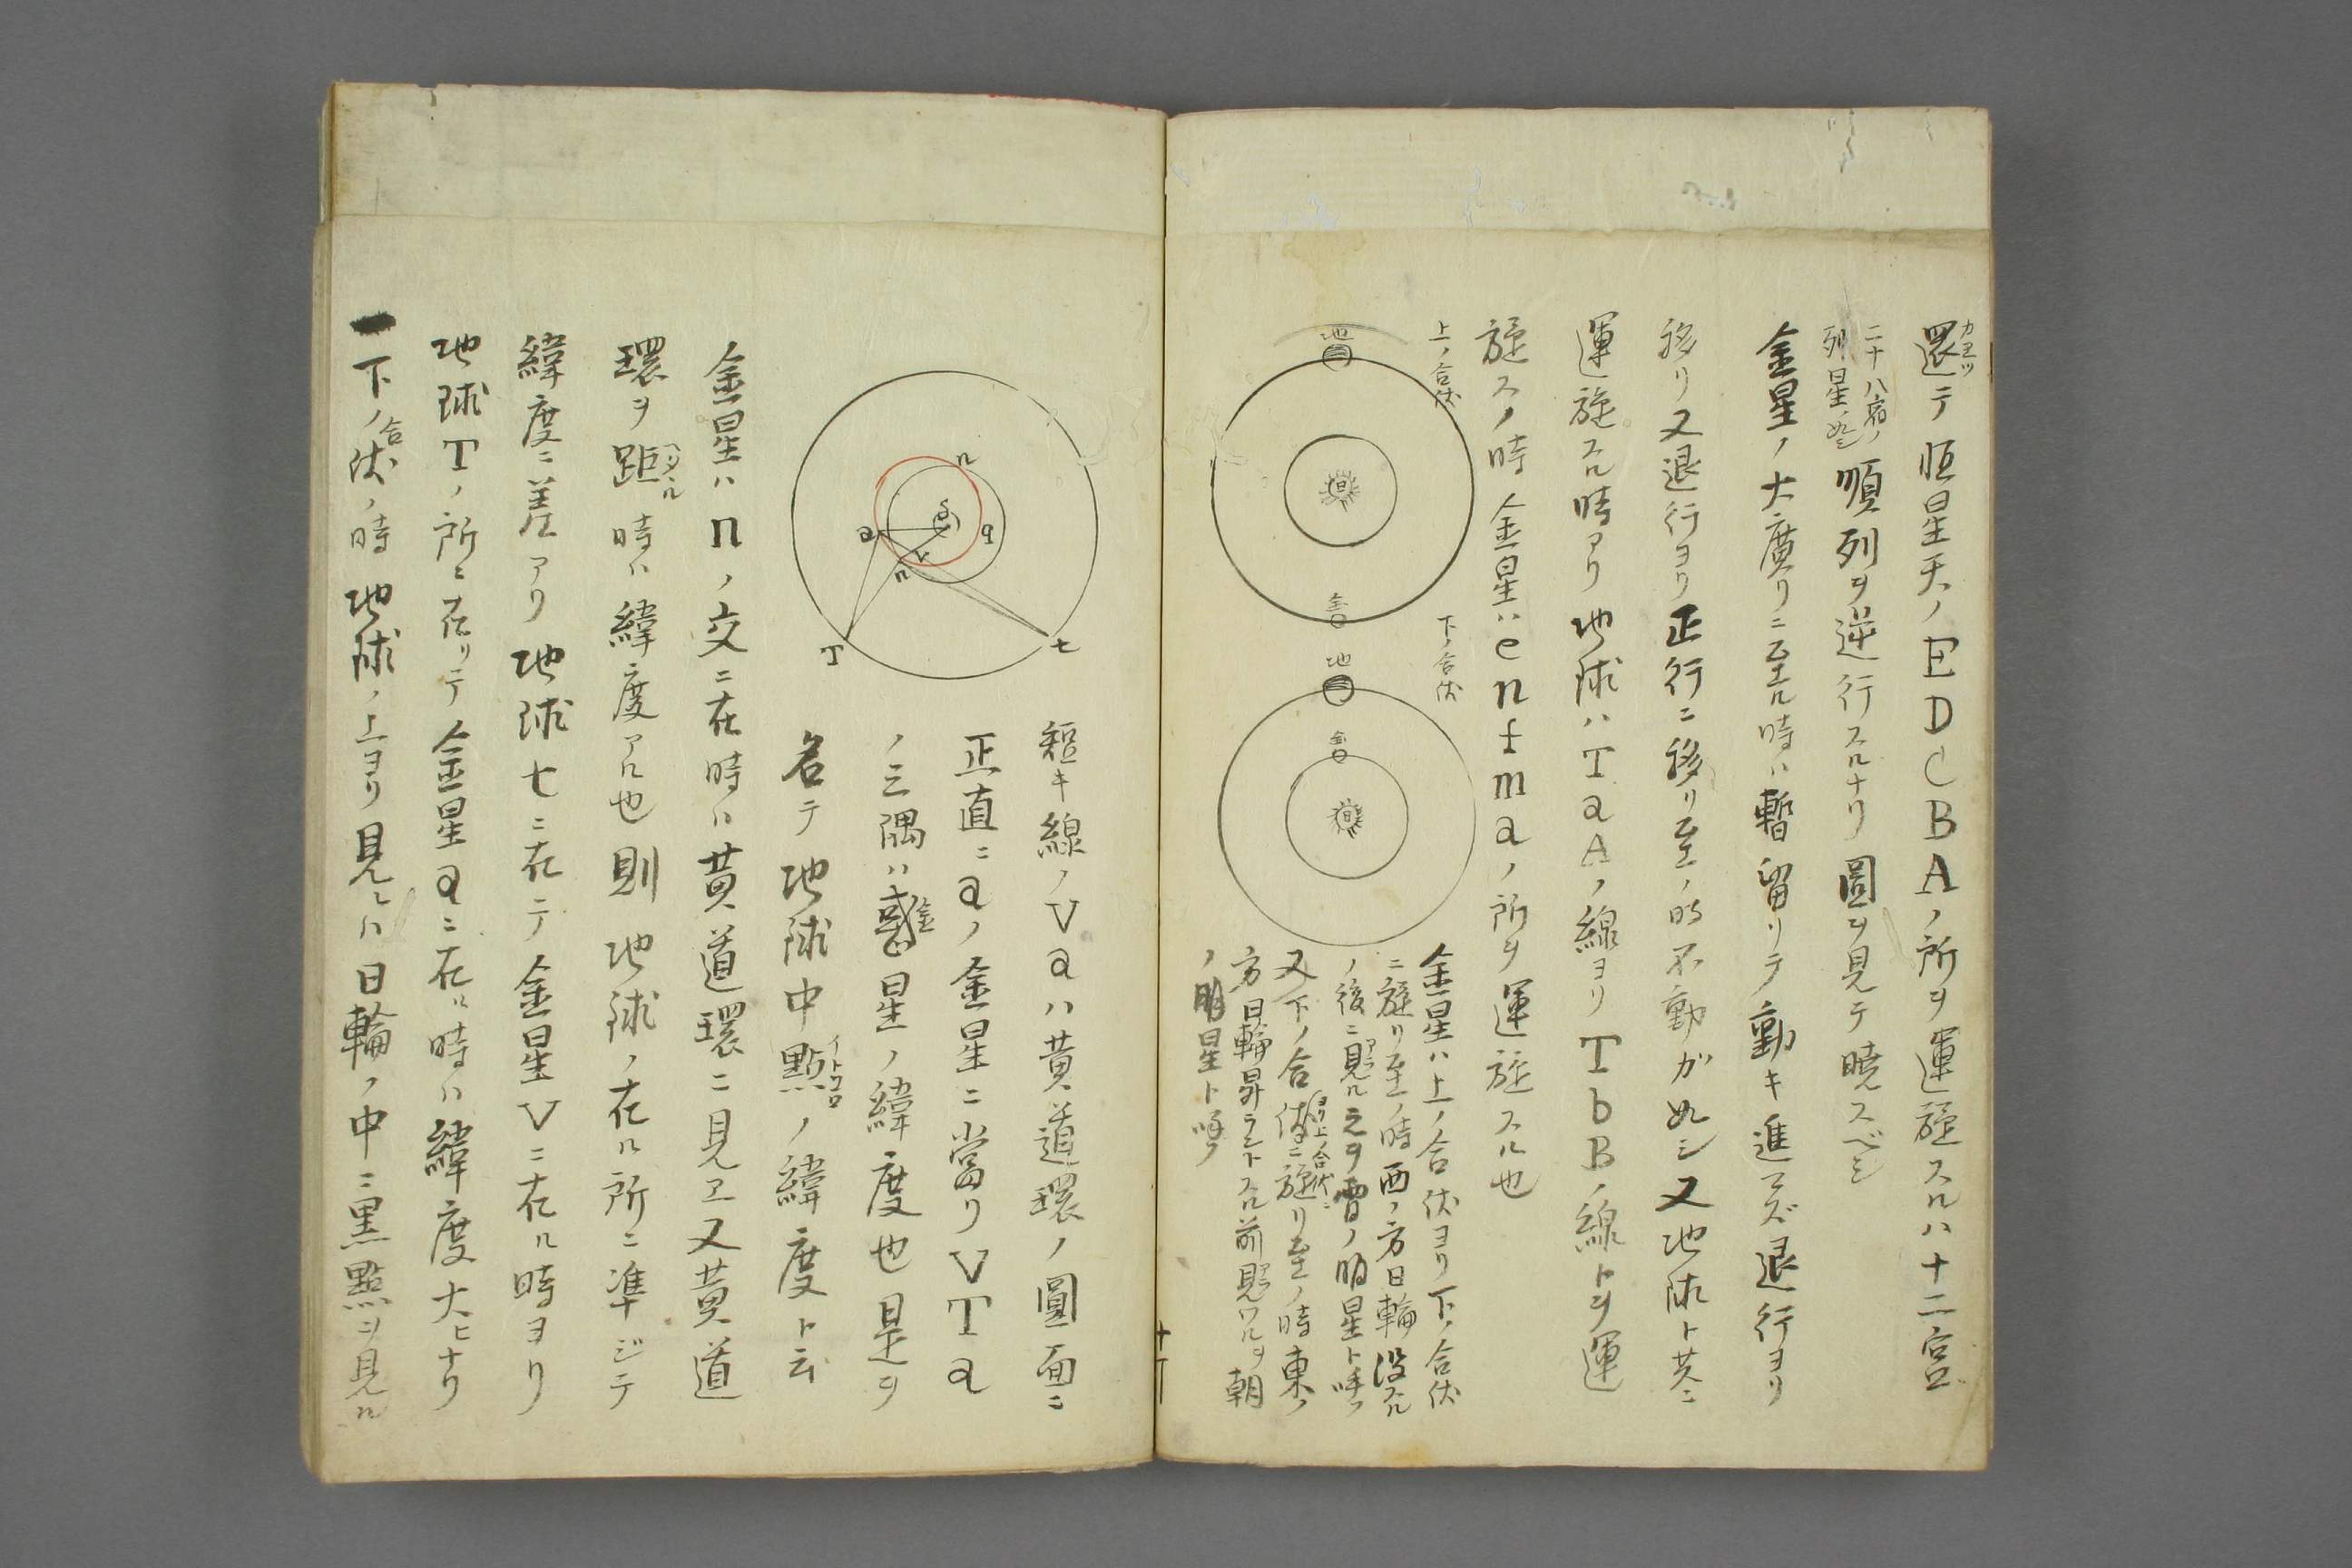 還テ恒星天ノEDCBAノ所ヲ運旋スルハ十二宮
カヨツ
二十八宿ノ
列星ノ如シ
順列ヲ逆行スルナリ圖ヲ見テ暁スベシ
金星ノ大廣リニ至ル時ハ暫留リテ動キ進マズ退行ヨリ
移リ又退行ヨリ正行ニ移リ至ノ時不動ガ如シ又地球ト共ニ
運旋スル時アリ地球ハTaAノ線ヨリTbBノ線トヲ運
旋スノ時金星ハenfmaノ所ヲ運旋スル也
上ノ合伏
地
日
金
下ノ合伏
地
金
日
金星ハ上ノ合伏ヨリ下ノ合伏
ニ旋リ至ノ時西ノ方日輪没スル
ノ後ニ見ルヲ霄ノ明星ト呼フ
又下ノ合伏ヨリ上ノ合伏ニ旋リ至ノ時東ノ
方日輪昇ラントスル前見ワルヲ朝
ノ明星ト呼フ
短キ線ノVaハ黄道環ノ圓面ニ
正直ニaノ金星ニ當リVTa
ノ三隅ハ金星ノ緯度也是ヲ
名テ地球中點ノ緯度ト云
n
S
a
q
v
n
T
t
金星ハnノ交ニ在時ハ黄道環ニ見ヱ又黄道
環ヲ距時ハ緯度アル也則地球ノ在ル所ニ準ジテ
ヘダヽル
緯度ニ差アリ地球tニ在テ金星Vニ在ル時ヨリ
地球Tノ所ニ在リテ金星aニ在ル時ハ緯度大ヒナリ
一下ノ合伏ノ時地球ノ上ヨリ見レハ日輪ノ中ニ黒點ヲ見ル